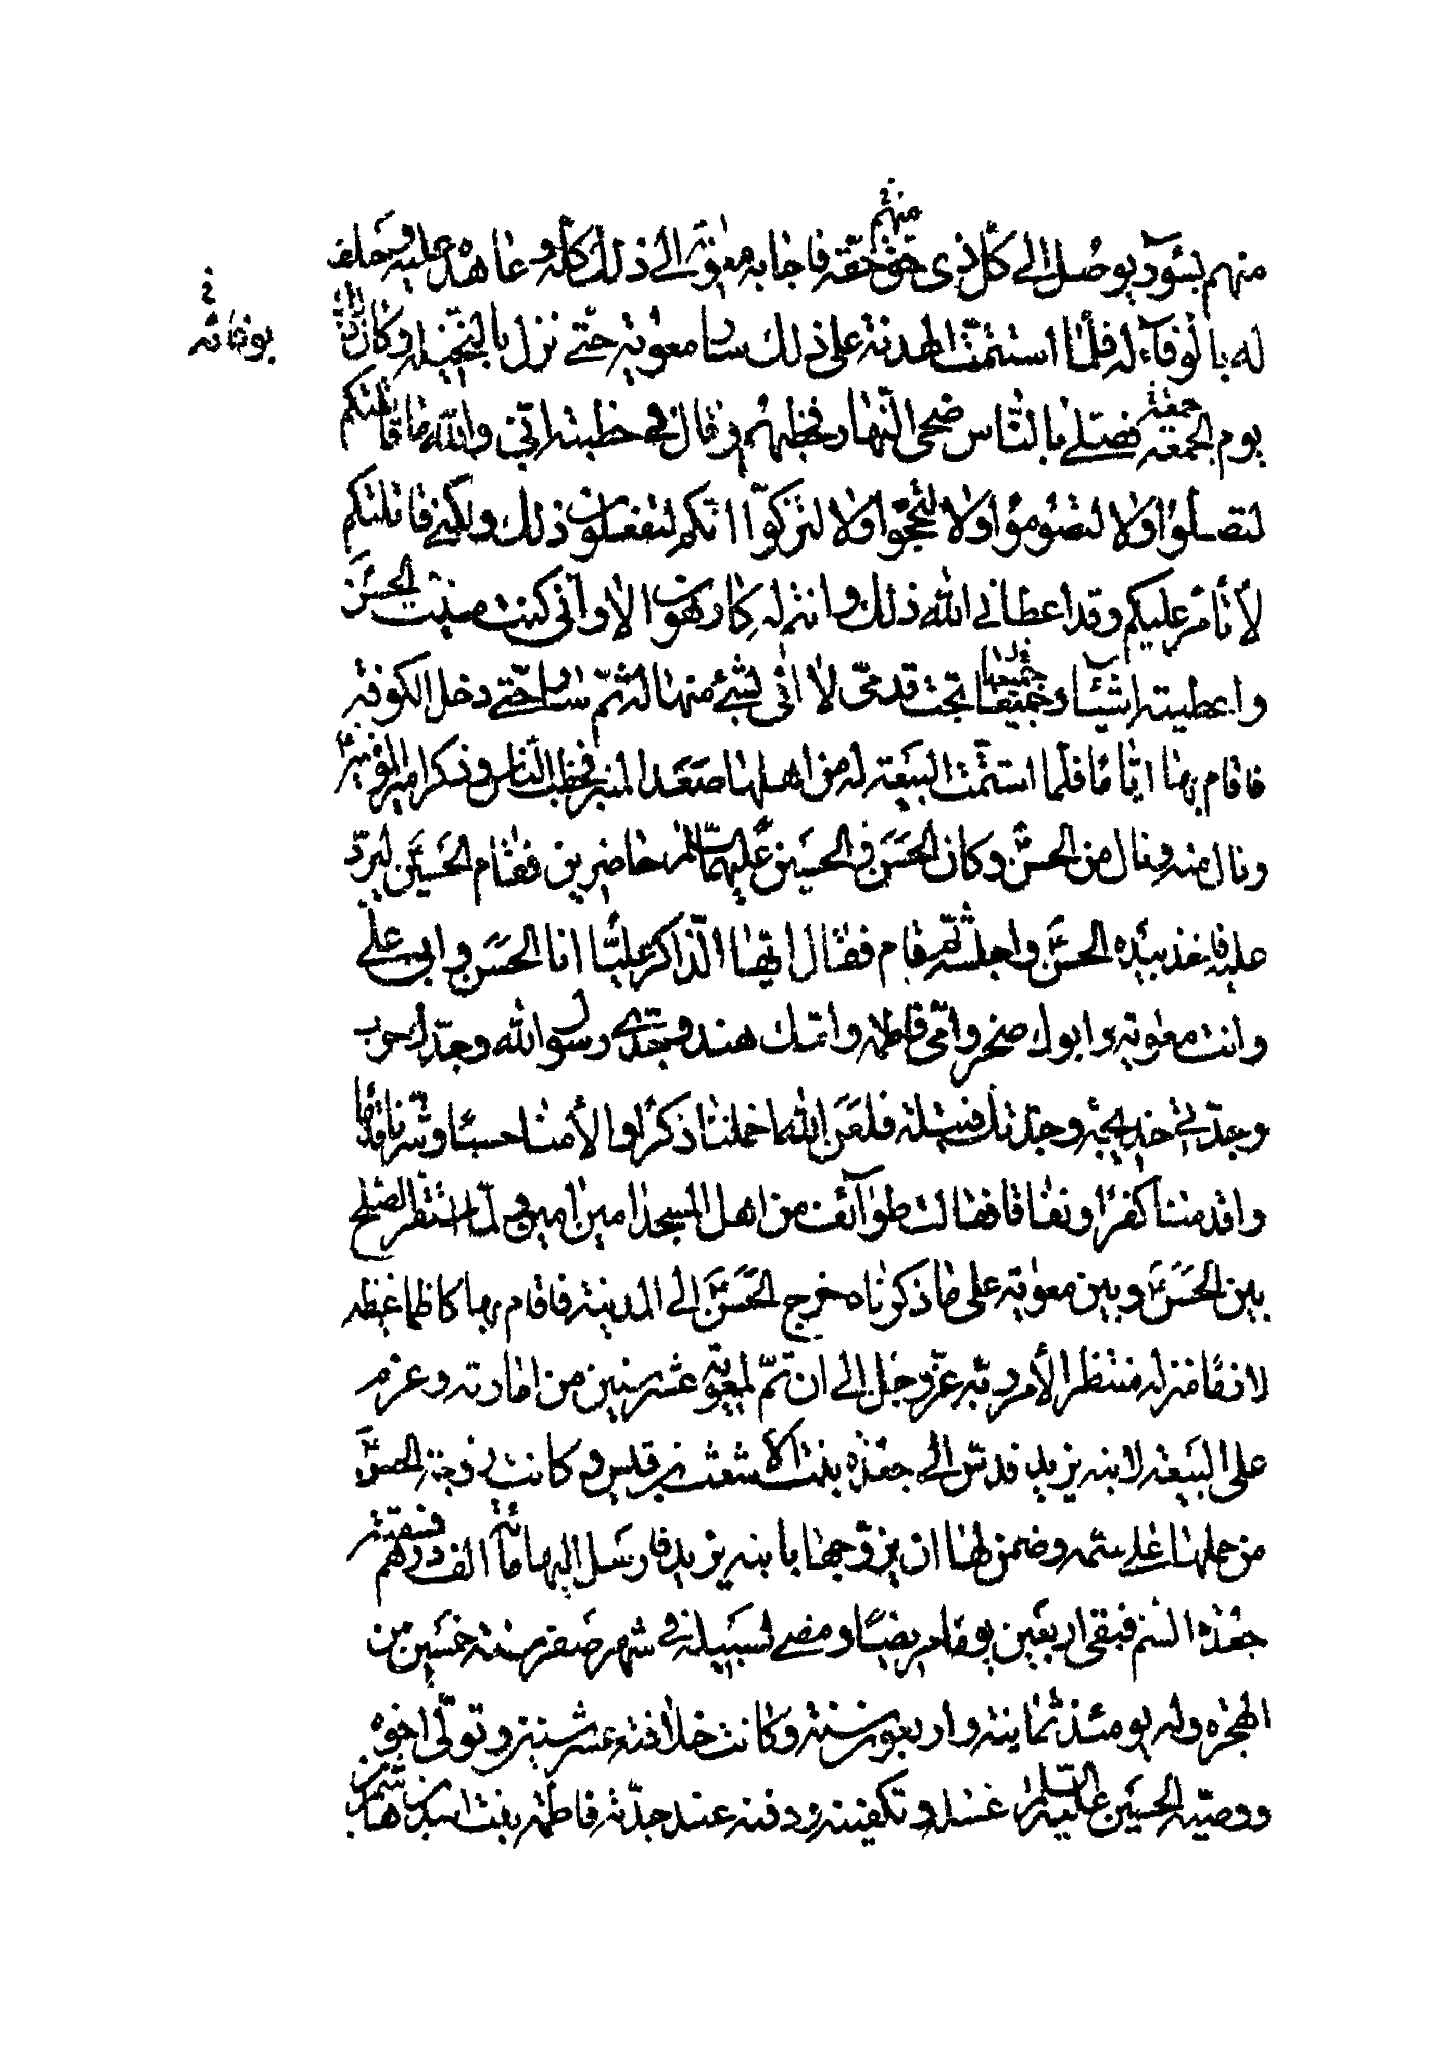 منهم بسوء ويوصل الى كل ذى حق منهم حقه فاجابه معوية الى ذلك كله وعاهده عليه وحلف
له بالوفاء له فلما استتمت الهدنة على ذلك سار معوية حتى نزل بالنخيلة وكان ذلك
بوفائه
يوم الجمعة جمعة فصلى بالناس ضحى النهار فخطبهم وقال في خطبته انى والله ما قاتلتكم
لتصلوا ولا لتصوموا ولا لتحجوا ولا لتزكوا انكم لتفعلون ذلك ولكني قاتلتكم
لأتأمر عليكم وقد اعطاني الله ذلك وانتم له كارهون الا وانى كنت منيت الحسن
واعطيته اشياء وجميعها تحت قدمى لا افى بشئ منها له ثم سار حتى دخل الكوفة
فاقام بها اياما فلما استتمت البيعة له من اهلها صعد المنبر فخطب الناس وذكر امير المؤمنين
ونال منه ونال من الحسن وكان الحسن والحسين عليهما السلام حاضرين فقام الحسين ليرد
عليه فاخذ بيده الحسن واجلسه ثم قام فقال ايها الذاكر عليا انا الحسن وابى على
وانت معوية وابوك صخر وامى فاطمة وامك هند وجدى رسول الله وجدك حرب
وجدتي خديجة وجدتك فتيلة فلعن الله اخملنا ذكرا والأمنا حسبا وشرنا قدما
واقدمنا كفرا ونفاقا فقالت طوائف من اهل المسجد امين امين ولما استقر الصلح
بين الحسن وبين معوية على ما ذكرناه خرج الحسن الى المدينة فاقام بها كاظما غيظه
لازما منزله منتظرا لأمر ربه عز وجل الى ان تم لمعوية عشر سنين من امارته وعزم
على البيعة لابنه يزيد فدس الى جعدة بنت الاشعث بن قيس وكانت زوجة الحسن
من حملها على سمه وضمن لها ان يزوجها بابنه يزيد فارسل اليها مائة الف درهم فسقته
جعدة السم فبقى اربعين يوما مريضا ومضى لسبيله في شهر صفر سنة خمسين من
الهجرة وله يومئذ ثمانية واربعون سنة وكانت خلافته عشر سنين وتولى اخوه
ووصيه الحسين عليه السلام غسله وتكفينه ودفنه عند جدته فاطمة بنت اسد بن هاشم بن